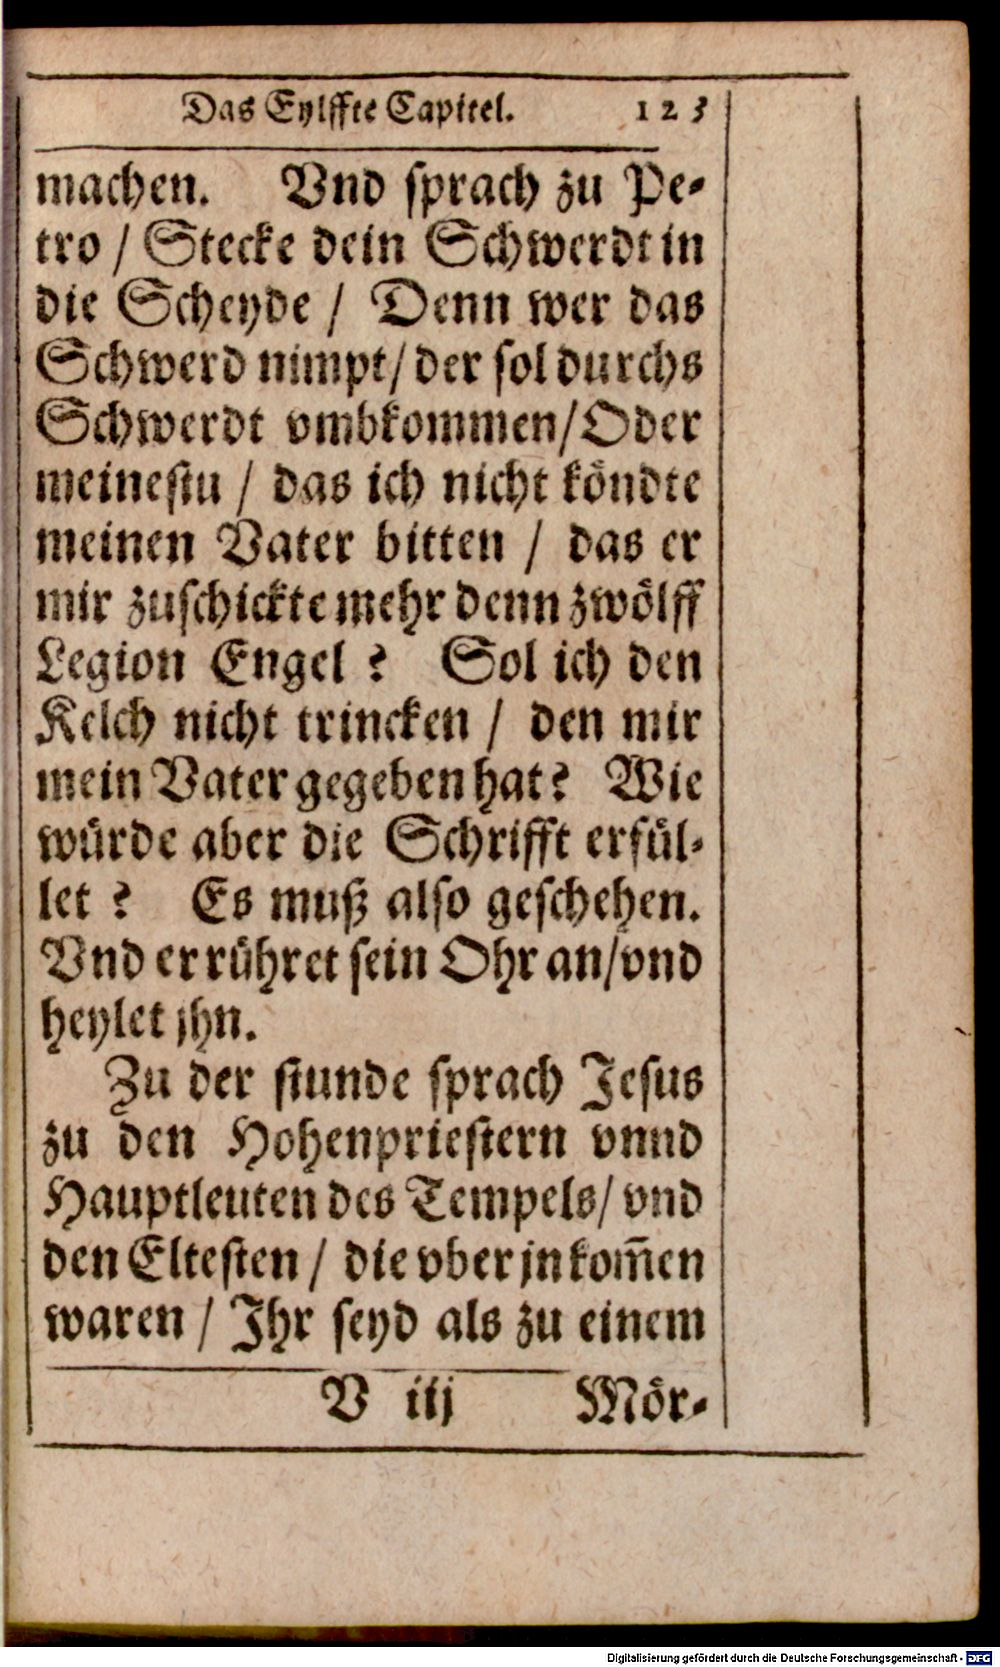 Das Eylffte Capitel. 123
machen. Vnd sprach zu Pe-
tro / Stecke dein Schwerdt in
die Scheyde / Denn wer das
Schwerd nimpt / der sol durchs
Schwerdt vmbkommen / Oder
meinestu / das ich nicht köndte
meinen Vater bitten / das er
mir zuschickte mehr denn zwölff
Legion Engel? Sol ich den
Kelch nicht trincken / den mir
mein Vater gegeben hat? Wie
würde aber die Schrifft erfül-
let? Es muß also geschehen.
Vnd er rühret sein Ohr an / vnd
heylet jhn.
Zu der stunde sprach Jesus
zu den Hohenpriestern vnnd
Hauptleuten des Tempels / vnd
den Eltesten / die vber jn kom̃en
waren / Jhr seyd als zu einem
V iij Mör-
Digitalisierung gefördert durch die Deutsche Forschungsgemeinschaft - DFG